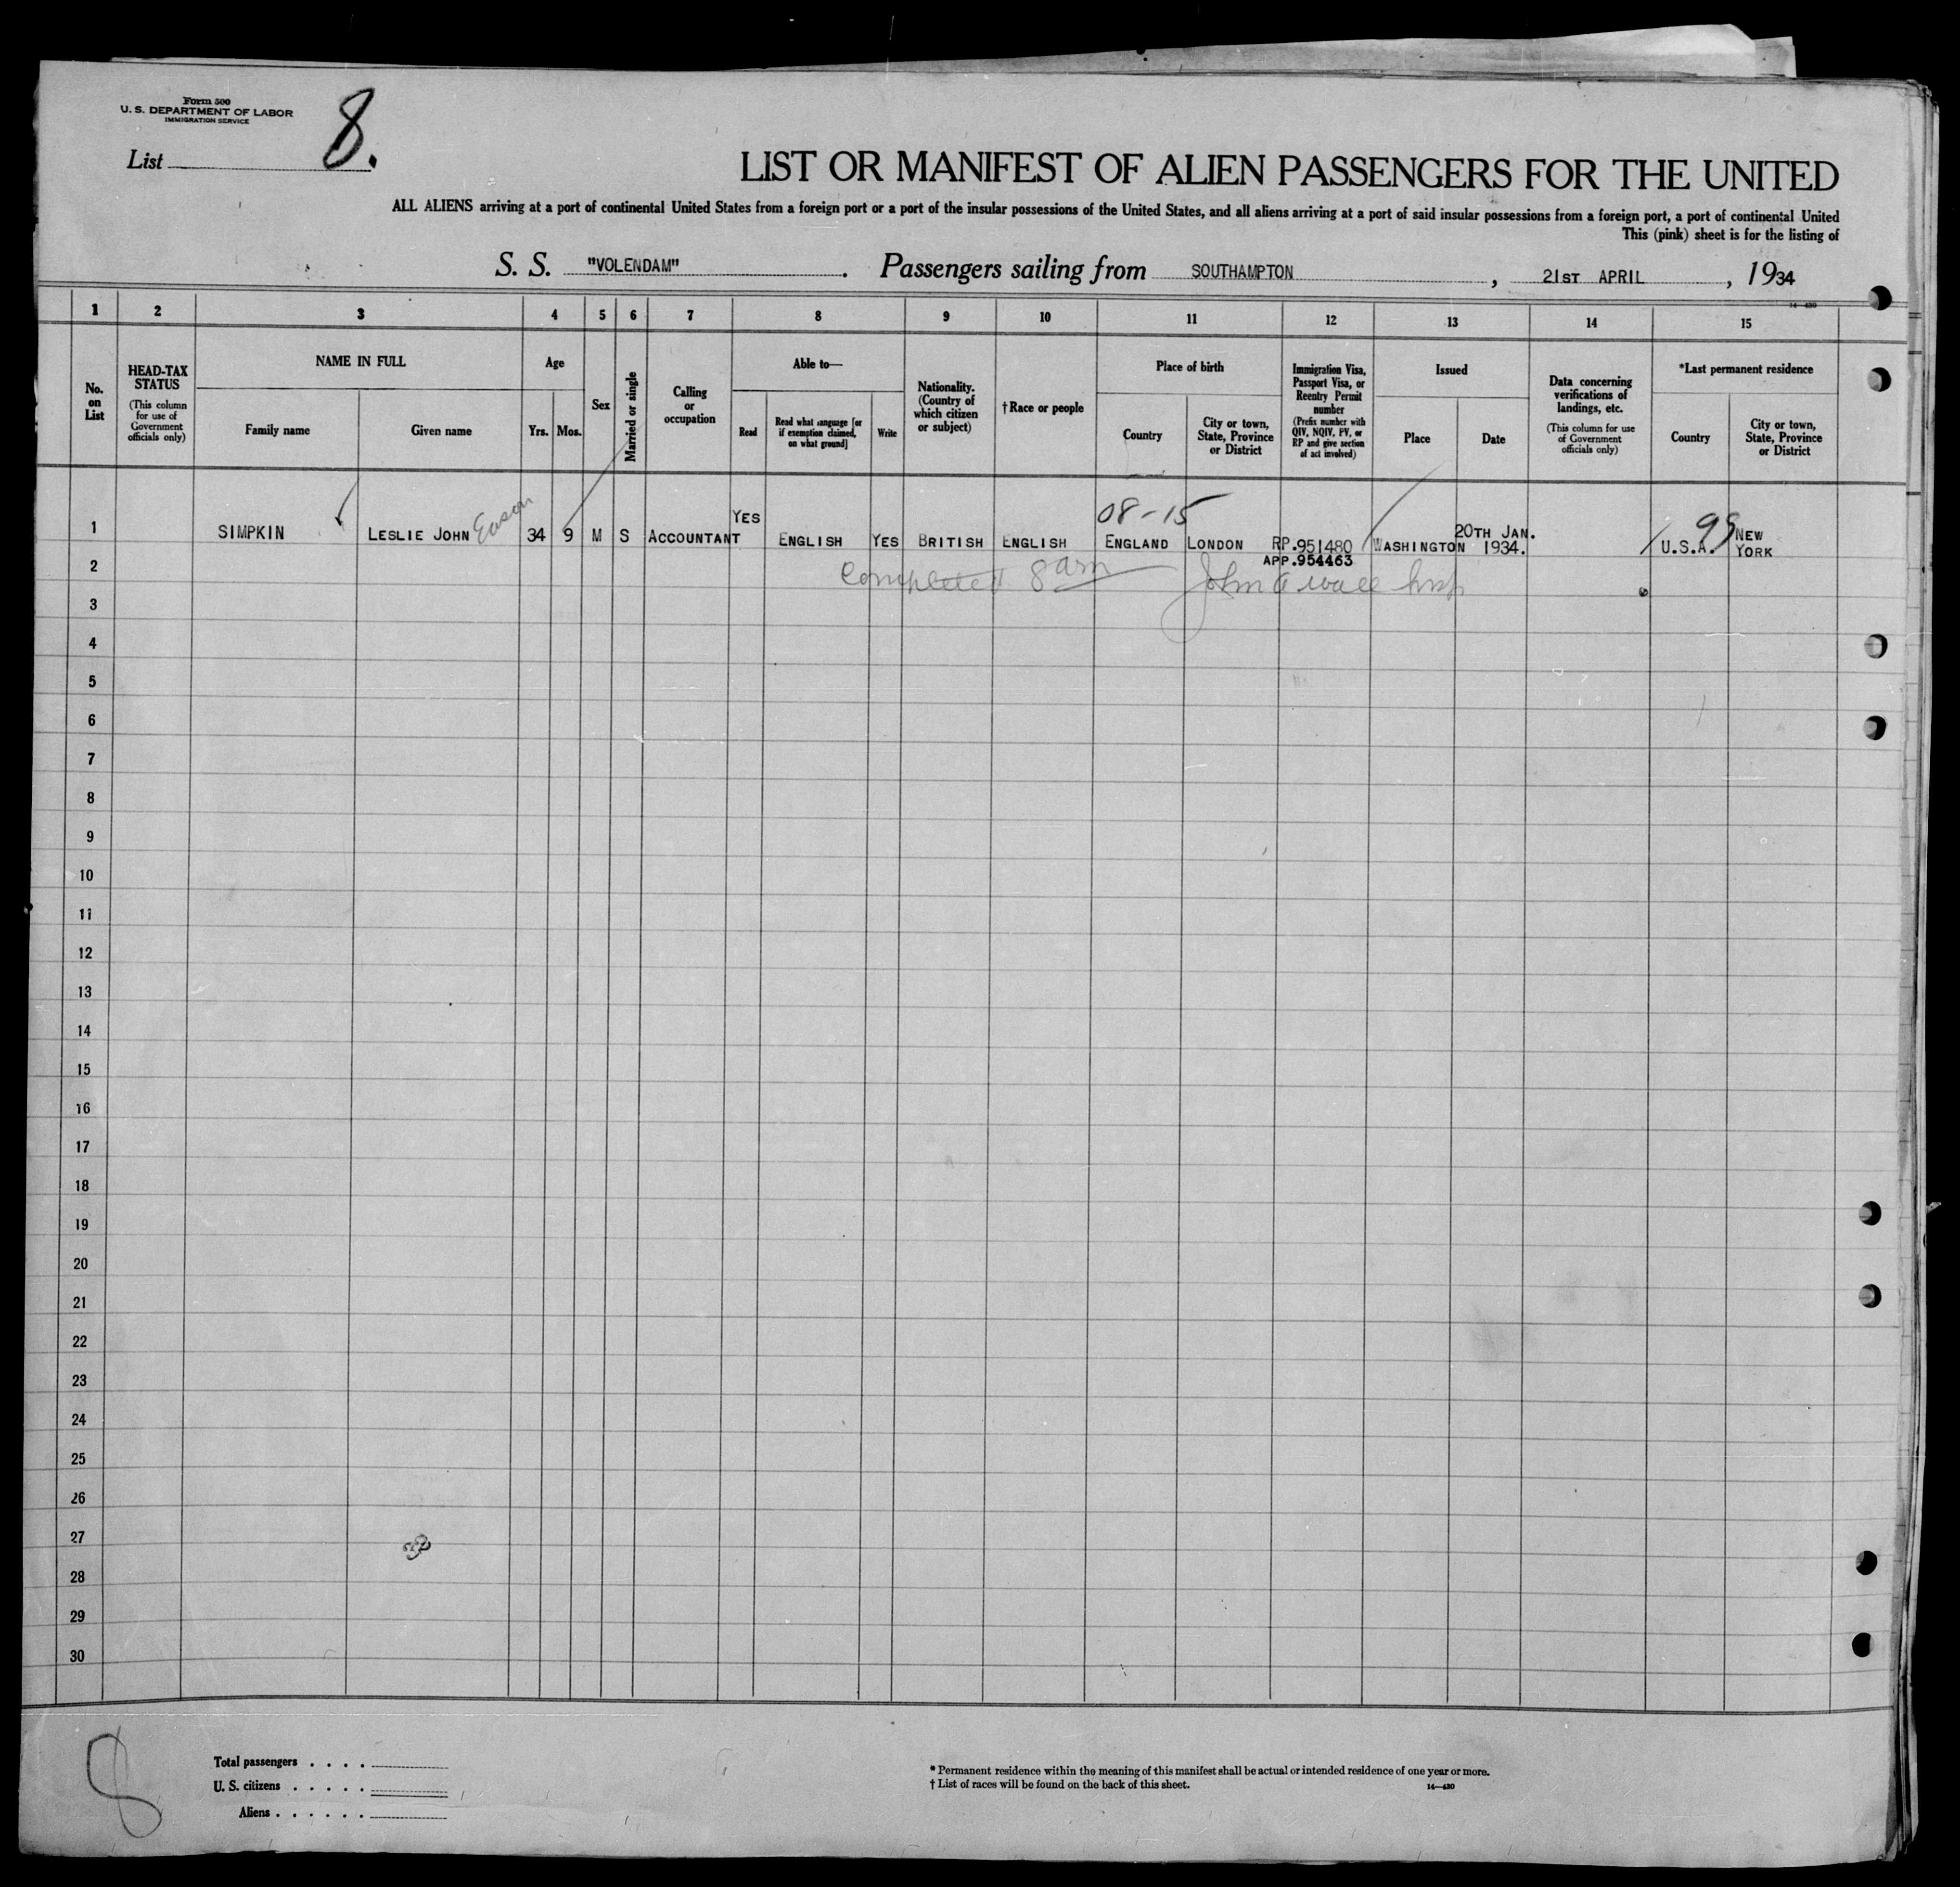 Form 500
U. S. DEPARTMENT OF LABOR
IMMIGRATION SERVICE
List 8.
LIST OR MANIFEST OF ALIEN PASSENGERS FOR THE UNITED
ALL ALIENS arriving at a port of continental United States from a foreign port or a port of the insular possessions of the United States, and all aliens arriving at a port of said insular possessions from a foreign port, a port of continental United
This (pink) sheet is for the listing of
S. S. "VOLENDAM". Passengers sailing from SOUTHAMPTON, 21ST APRIL, 1934
14—430
1 2 3 4 5 6 7 8 9 10 11 12 13 14 15
No. on List
HEAD-TAX STATUS
(This column for use of Government officials only)
NAME IN FULL
Family name
Given name
Age
Yrs. Mos.
Sex
Married or single
Calling or occupation
Able to—
Read
Read what language [or if exemption claimed, on what ground]
Write
Nationality. (Country of which citizen or subject)
†Race or people
Place of birth
Country
City or town, State, Province or District
Immigration Visa, Passport Visa, or Reentry Permit number
(Prefix number with QIV, NQIV, PV, or RP and give section of act involved)
Issued
Place
Date
Data concerning verifications of landings, etc.
(This column for use of Government officials only)
*Last permanent residence
Country
City or town, State, Province or District
08-15
99
1 SIMPKIN LESLIE JOHN Eason 34 9 M S ACCOUNTANT YES ENGLISH YES BRITISH ENGLISH ENGLAND LONDON RP.951480 WASHINGTON 20TH JAN. 1934. U.S.A. NEW YORK
APP.954463
2 Completed 8 am John A Wall Insp
3
4
5
6
7
8
9
10
11
12
13
14
15
16
17
18
19
20
21
22
23
24
25
26
27
28
29
30
8
Total passengers . . . .
U. S. citizens . . . . .
Aliens . . . . . .
* Permanent residence within the meaning of this manifest shall be actual or intended residence of one year or more.
† List of races will be found on the back of this sheet.
14—430